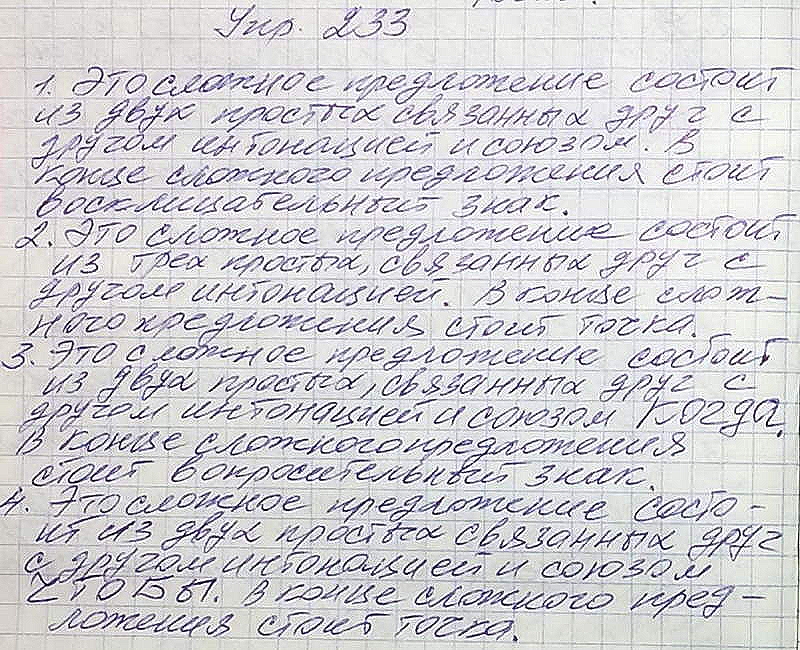 Упр. 233
1. Это сложное предложение состоит
из двух простых связанных друг с
другом интонацией и союзом. В
конце сложного предложения стоит
восклицательный знак.
2. Это сложное предложение состоит
из трех простых, связанных друг с
другом интонацией. В конце слож-
ного предложения стоит точка.
3. Это сложное предложение состоит
из двух простых, связанных друг с
другом интонацией и союзом КОГДА.
В конце сложного предложения
стоит вопросительный знак.
4. Это сложное предложение состо-
ит из двух простых связанных друг
с другом интонацией и союзом
ЧТОБЫ. В конце сложного пред-
ложения стоит точка.